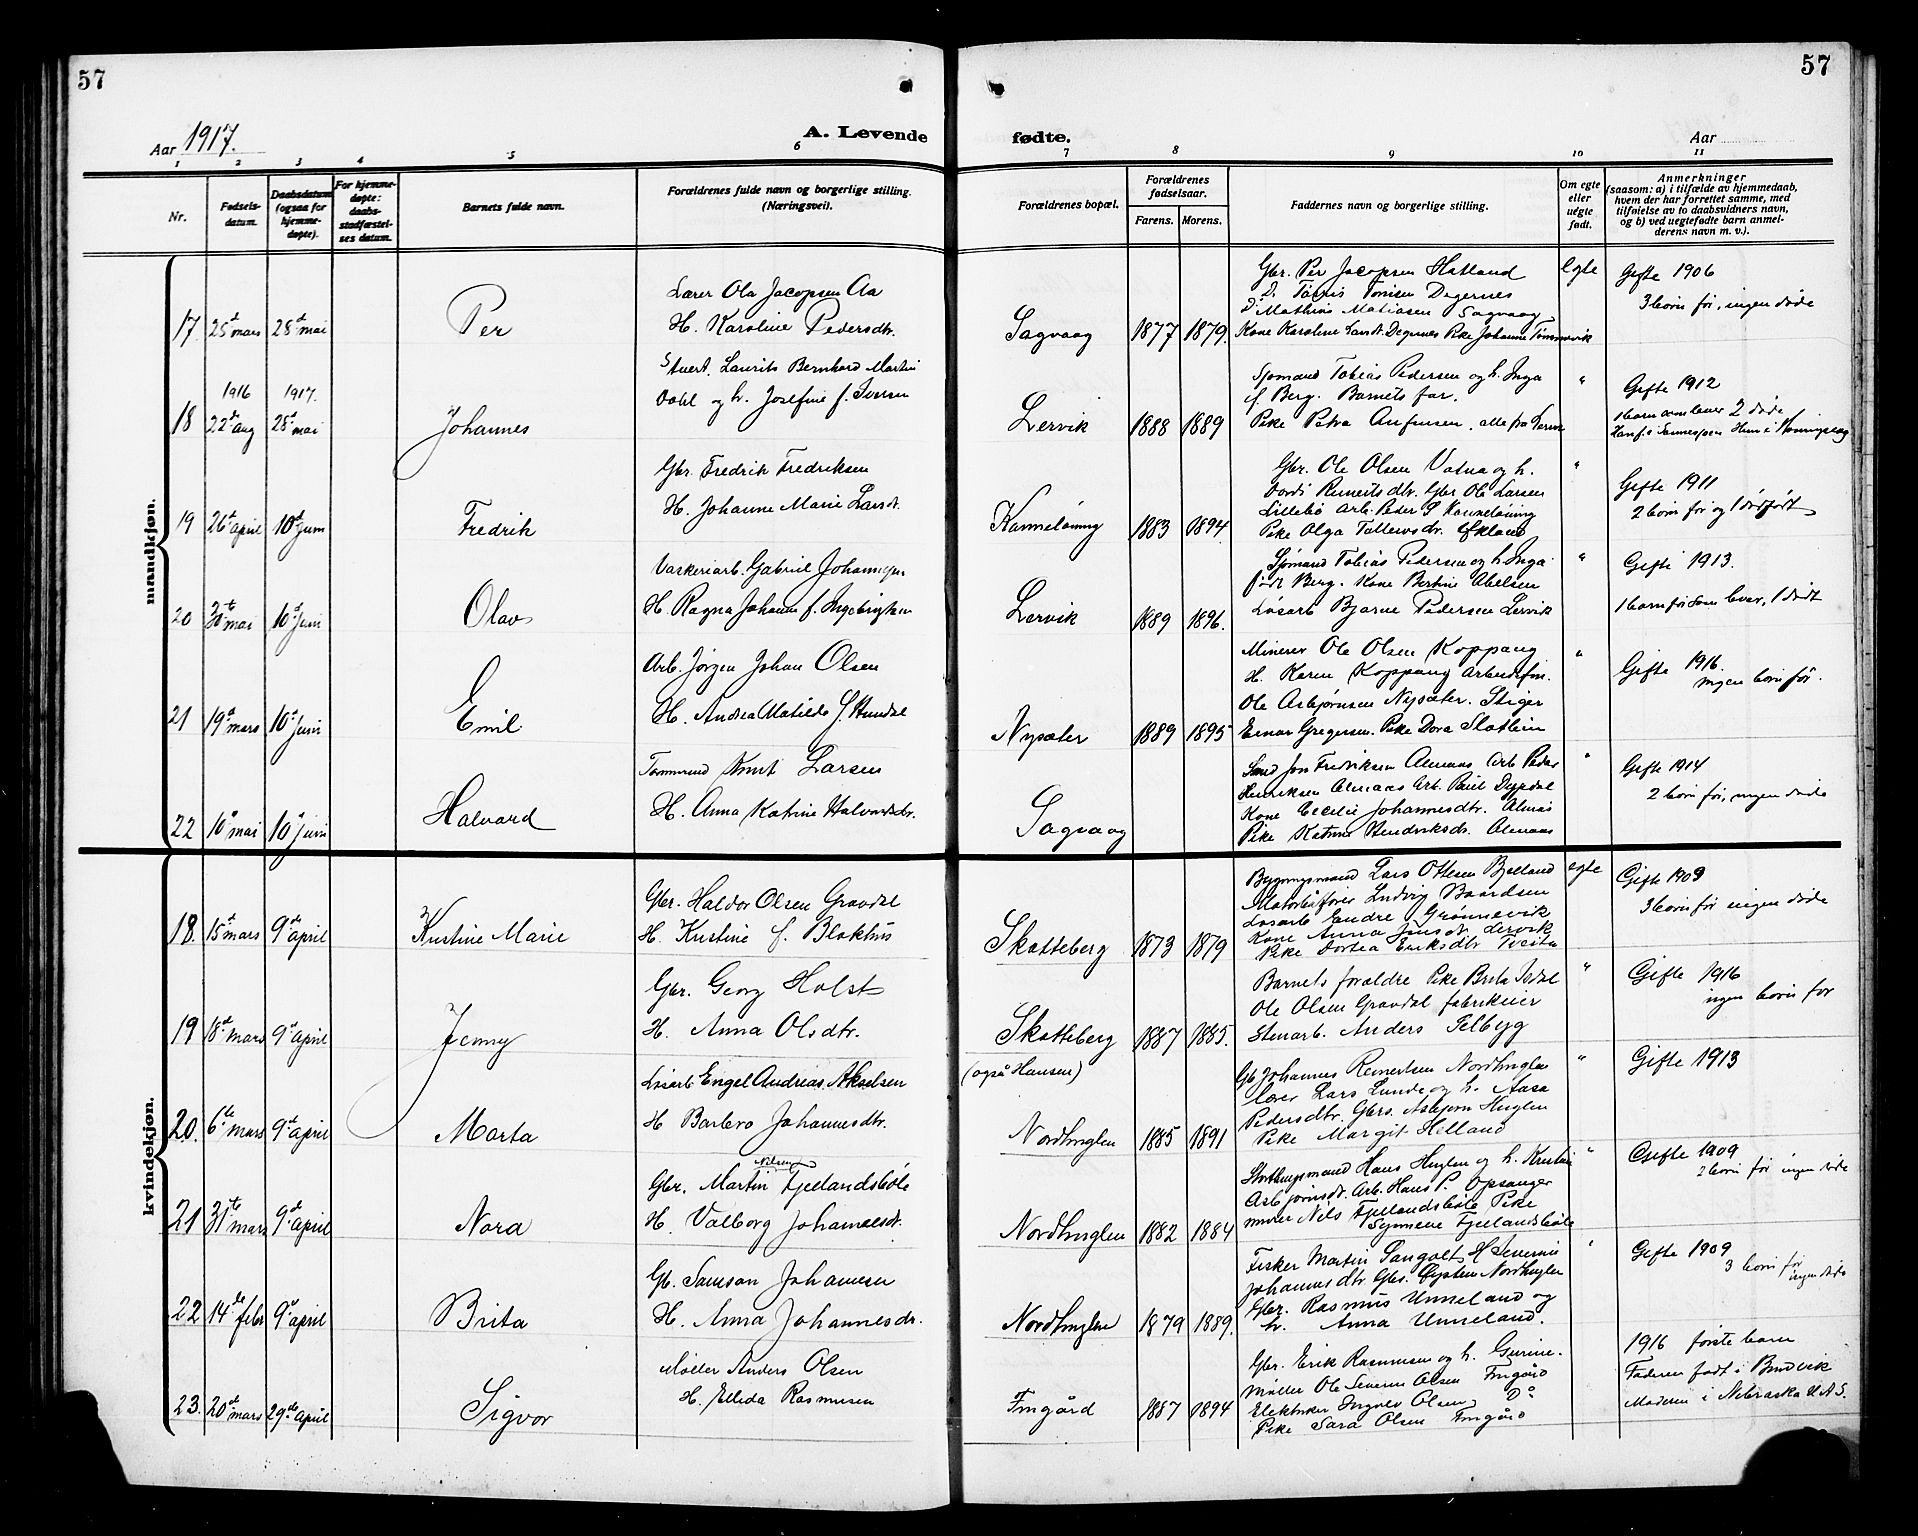 57
57
Aar 1917.
A. Levende
fødte.
Aar
1 2 3 4 5 6 7 8 9 10 11
Nr.
Fødsels-
datum.
Daabsdatum
(ogsaa for
hjemme-
døpte).
For hjemme-
døpte:
daabs-
stadfæstel-
ses datum.
Barnets fulde navn.
Forældrenes fulde navn og borgerlige stilling.
(Næringsvei).
Forældrenes bopæl.
Forældrenes
fødselsaar.
Farens. Morens.
Faddernes navn og borgerlige stilling.
Om egte
eller
uegte
født.
Anmerkninger
(saasom: a) i tilfælde av hjemmedaab,
hvem der har forrettet samme, med
tilføielse av to daabsvidners navn,
og b) ved uegtefødte barn anmel-
derens navn m. v.).
mandkjøn.
17 25de mars 28de mai
Per
Lærer Ola Jacopsen Aa
H. Karoline Pedersdtr.
Sagvaag
1877 1879.
Gbr. Per Jacopsen Hatland
Do Tønnis Tønisen Degernes
Do Mathias Matiasen Sagvaag
Kone Karoline Larsdt. Degernes Pike Johanne
egte
Gifte 1906
3 born før, ingen døde
1916 1917.
18 22de aug 28de mai
Johannes
Stuert. Laurits Bernhard Martin
Dahl og h. Josefine f. Iversen
Lervik
1888 1889
Sjømand Tobias Pedersen og h. Inga
f. Berg. Barnets far.
Pike Petra Anfinsen. alle fra Lervik
"
Gifte 1912
1 barn som lever 2 døde
19 26de april 10de Juni
Fredrik
Gbr. Fredrik Fredriksen
H. Johanne Marie Larsdt.
Kanneløning
1883 1894.
Gbr. Ole Olsen Vatna og h.
Dordi Reineitsdtr. Gbr Ole Larsen
Lillebø Arb. Peder S Kanneløning
Pike Olga Tollevsdtr.
"
Gifte 1911
2 born før og 1 dødfødt
20 30te mai 10de Juni
Olav
Vaskeriarb. Gabriel Johannesen
H. Ragna Johanne f. Ingebrigtsen
Lervik
1889 1896.
Sjømand Tobias Pedersen og h. Inga
født Berg. Kone Bertine Abelsen
Løsarb Bjarne Pedersen Lervik
"
Gifte 1913.
1 barn før som lever, 1 dødt
21 19de mars 10de Juni
Emil
Arb. Jørgen Johan Olsen
H. Andrea Matilde f. Hundsl
Nysæter
1889 1895
Minerer Ole Olsen Koppang
H. Karen Koppang Arbeidsfm.
Ole Asbjørnsen Nysæter. Stiger
Einar Gregersen. Pike Dora Slotlein
"
Gifte 1916.
ingen born før.
22 10de mai 10de Juni
Halvard
Tømmermd Knut Larsen
H. Anna Katrine Halvorsdtr.
Sagvaag
Smed Jon Fredriksen Almaas Arb Peder
Henriksen Almaas Arb. Paul Dypdal
Kone Cecilie Johannesdtr. Almås
Pike Katrine Hendriksdr. Almaas
"
Gifte 1914
2 born før, ingen døde
kvindekjøn.
18. 15de mars 9de april
Kristine Marie
Gbr. Haldor Olsen Gravdal
H. Kristine f. Blokhus
Skatteberg
1873 1879
Bygningsmand Lars Ottesen Bjelland
Motorbåtfører Ludvig Baardsen
Løsarb Endre Grønnevik
Kone Anna Jensdt. Lervik
Pike Dortea Eriksdtr Tveita
egte
Gifte 1903
3 born før ingen døde
19 18de mars 9de april
Jenny
Gbr. Georg Holst
H. Anna Olsdtr.
Skatteberg
(også Hansen)
1887 1885.
Barnets foreldre Pike Brita Isdal
Ole Olsen Gravdal fabrikeier
Stenarb. Anders Selbyg
"
Gifte 1916
ingen born før
20. 6te mars 9de april
Marta
Løsarb Engel Andreas Akselsen
H Barbro Johannesdtr.
Nordhuglen
1885 1891
Gb Johannes Reinertsen Nordhuglen
Lærer Lars Lunde og h. Aasa
Pedersdtr. Gbrs. Asbjørn Huglen
Pike Margit Helland
"
Gifte 1913
21 31te mars 9de april
Nora
Nilsen
Gbr. Martin Fjellandsbøle
H. Valborg Johannesdt.
Nordhuglen
1882 1884
Stortingsmand Hans Huglen og h. Kristine
Asbjørnsdt. Arb. Hans P. Opsanger
murer Nils Fjellandsbøle Pike
Synneve Fjellandsbøle
"
Gifte 1909
2 born før ingen døde
22 14de febr 9de april
Brita
Gb. Samson Johannesen
H. Anna Johannesdr.
Nordhuglen
1879 1889.
Fisker Martin Sangolt H Severine
Johannesdtr Gbr. Øystein Nordhuglen
Gbr. Rasmus Unneland og
h. Anna Unneland.
"
Gifte 1909
3 born før
ingen døde
23. 20de mars 29de april
Sigvor
Møller Anders Olsen
H. Ellida Rasmusen
Fingård
1887 1894
Gbr. Erik Rasmusen og h. Gurine.
Møller Ole Severin Olsen Fingård
Elektriker Ingolv Olsen Do
Pike Sara Olsen Fingård
1916 første barn
Faderen født i Bindvik
Moderen i Nebraska U.A.S.